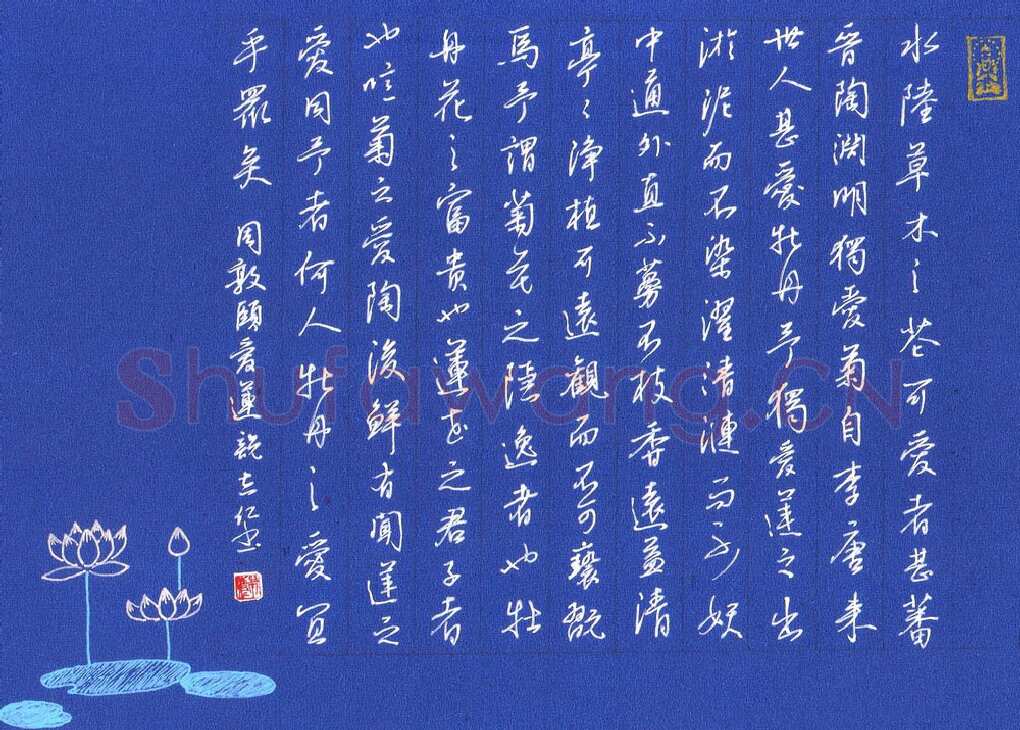 水陸草木之花可愛者甚蕃
晉陶淵明獨愛菊自李唐来
世人甚愛牡丹予獨愛蓮之出
淤泥而不染濯清漣而不妖
中通外直不蔓不枝香遠益清
亭亭淨植可遠觀而不可褻翫
焉予謂菊花之隱逸者也牡
丹花之富貴也蓮花之君子者
也噫菊之愛陶後鮮有聞蓮之
愛同予者何人牡丹之愛宜
乎眾矣 周敦頤愛蓮說 志仁書
Shufawang.CN